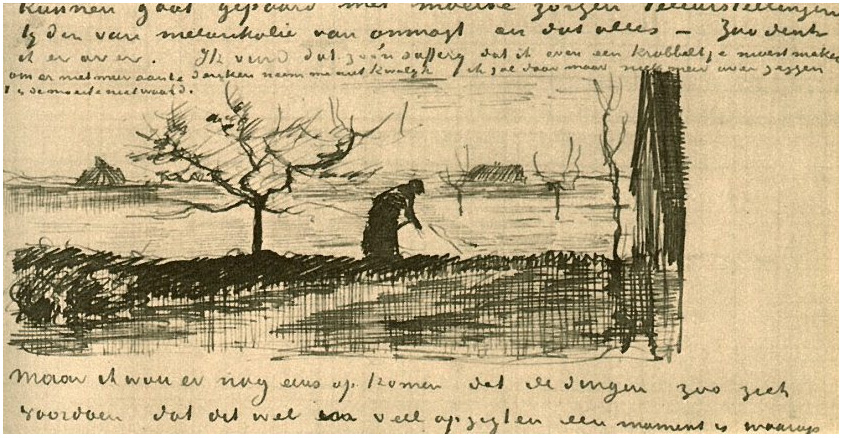 kunnen gaat gepaard met moeite zorgen teleurstellingen
tyden van melankolie van onmagt en dat alles — Zoo denk
ik er over. Ik vind dat zoo'n dat ik even een krabbeltje moest maken
om er niet meer aan te denken neem me niet kwalyk ik zal daar maar niets meer over zeggen
't is de moeite niet waard.
Maar ik wou er nog eens op komen dat de dingen zoo zich
voordoen dat dit wel een veel opzigten een moment is waarop